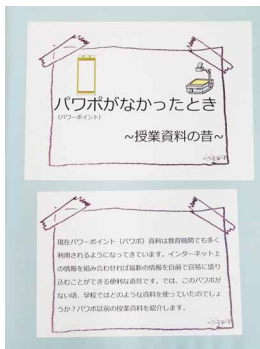 パワポがなかったとき
(パワーポイント)
~授業資料の昔~
現在パワーポイント(パワポ)資料は教育機関でも多く
利用されるようになってきています。インターネット上
の情報を組み合わせれば最新の情報を自前で容易に盛り
込むことができる便利な道具です。では、このパワポが
ない頃、学校ではどのような資料を使っていたのでしょ
うか?パワポ以前の授業資料を紹介します。